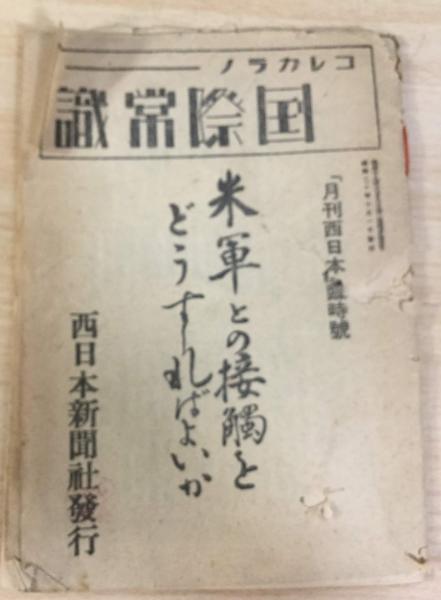 コレカラノ
国際常識
「月刊西日本」臨時號
米軍との接觸を
どうすればよいか
西日本新聞社發行